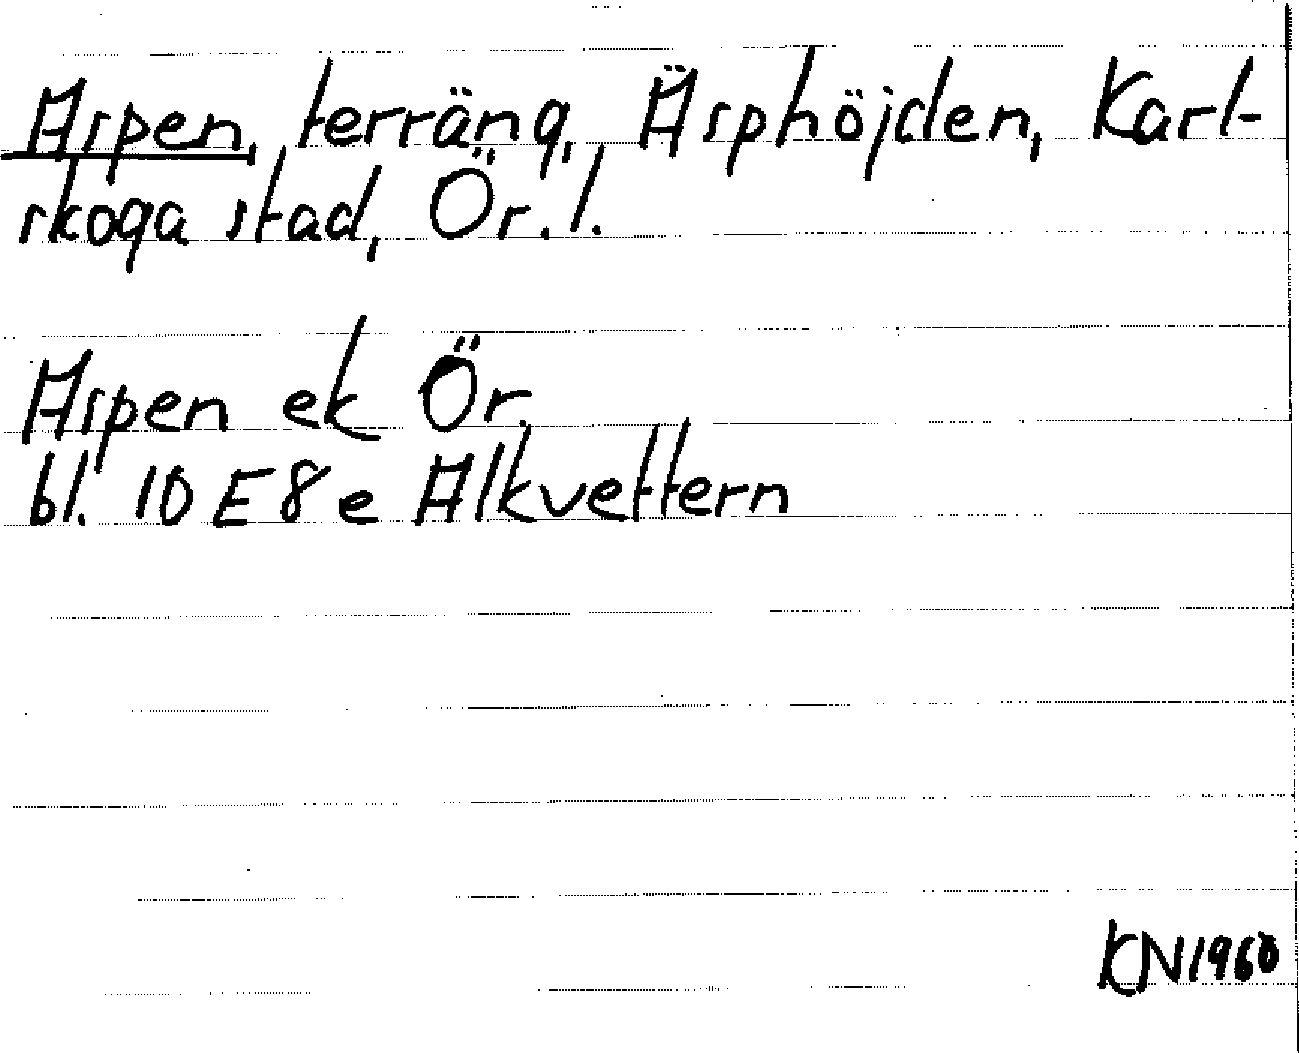 Aspen, terräng, Äsphöjden, Karl-
skoga stad, Ör. l.
Aspen ek Ör.
bl. 10 E 8 e Alkvettern
KN 1960